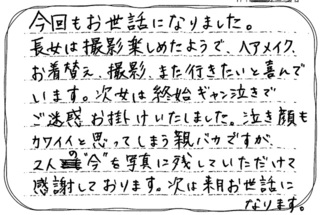 今回もお世話になりました。
長女は撮影楽しめたようで、ヘアメイク、
お着替え、撮影、また行きたいと喜んで
います。次女は終始ギャン泣きで
ご迷惑お掛けいたしました。泣き顔も
カワイイと思ってしまう親バカですが、
2人の“今”を写真に残していただけて
感謝しております。次は来月お世話に
なります。